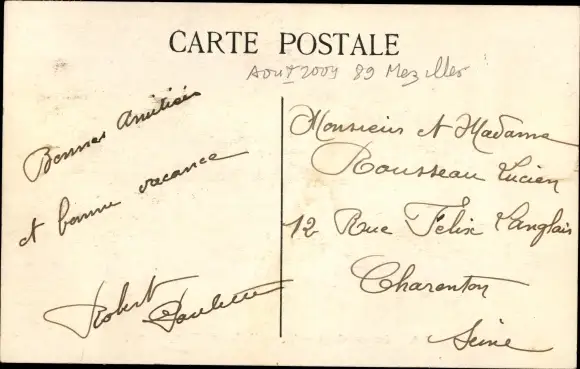 CARTE POSTALE
Aout 2009 89 Mezilles
Bonnes Amitiés
et bonne vacance
Robert Paulette
Monsieur et Madame
Rousseau Lucien
12 Rue Félix Langlais
Charenton
Seine